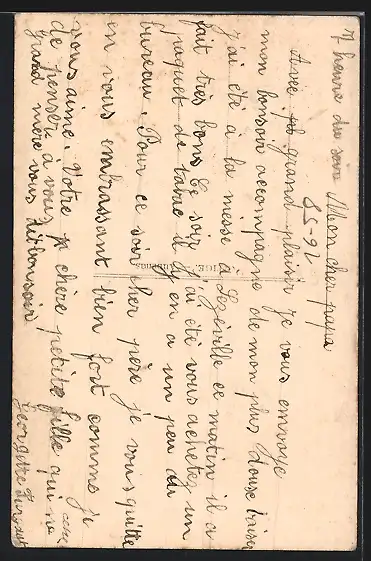 7 heure du soir Mon cher papa
Avec grand plaisir je vous envoye
mon bonsoir accompagne de mon plus douse baiser
j'ai été a la messe à Legéville ce matin il a
fait très bons Ce soir j'ai été vous achetez un
paquet de tabac il y en a un peu au
bureau. Pour ce soir cher père je vous quitte
en vous embrassant bien fort comme je
vous aime. Votre chère petite fille qui ne cesse
de penser à vous
Grand mère vous dit bonsoir
Georgette